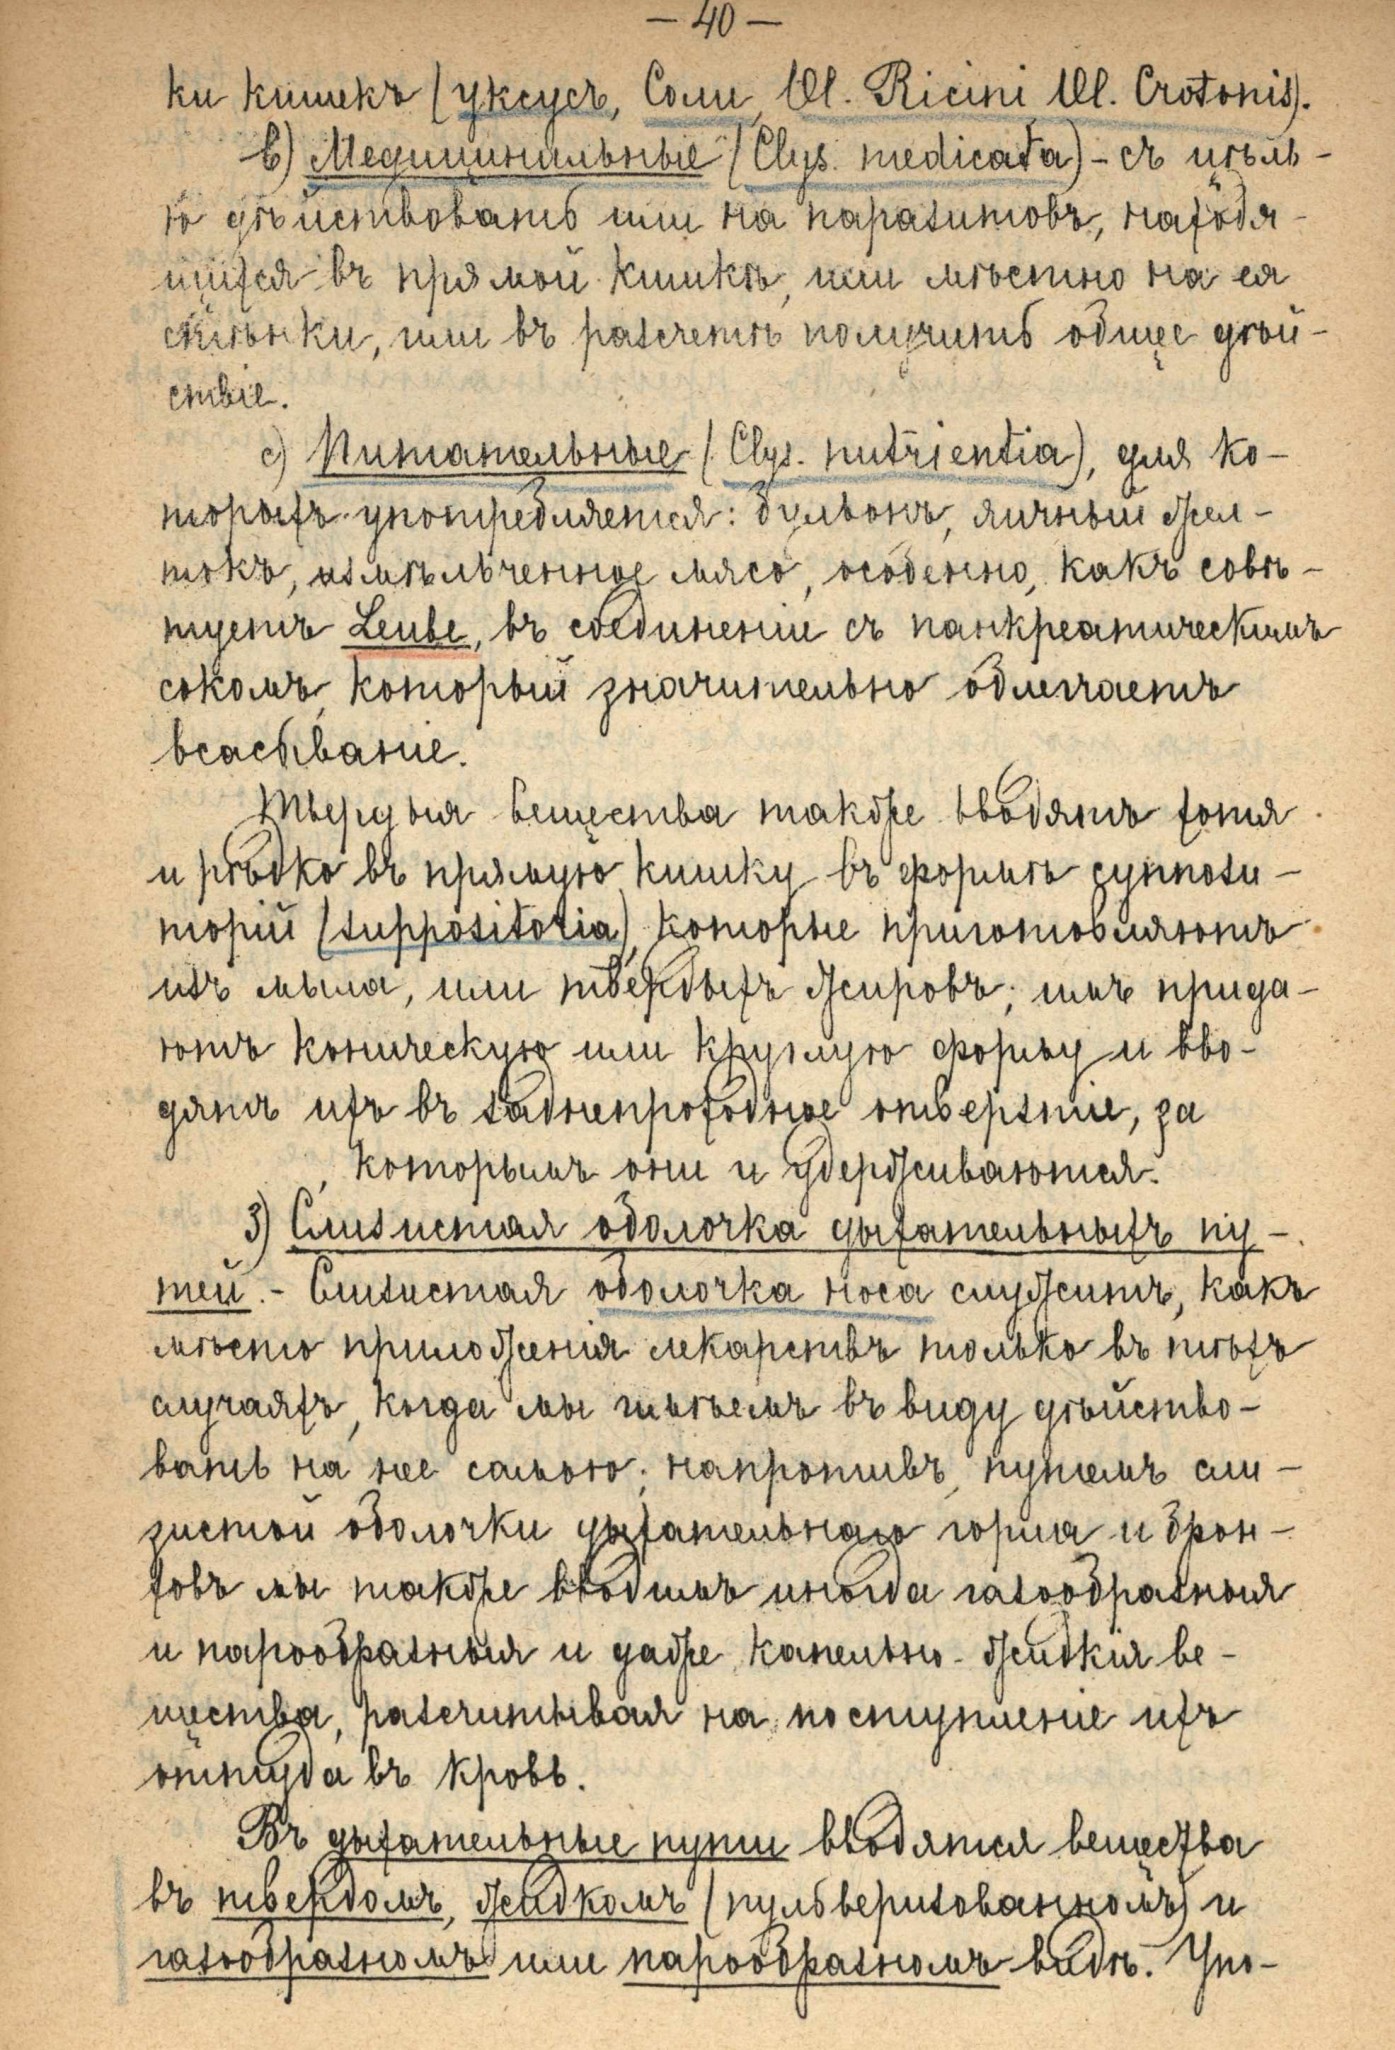 — 40 —
ки кишекъ (уксусъ, Соли, Ol. Ricini Ol. Crotonis).
b) Медицинильные (Clys. medicata) - съ цѣль-
ю дѣйствовать или на паразитовъ, находя-
щихся въ прямой кишкѣ, или мѣстно на ея
стѣнки, или въ разсчетѣ получить общее дѣй-
ствіе.
c) Питательные (Clys. nutrientia), для ко-
торыхъ употребляется: бульонъ, яичный жел-
токъ, измѣльченное мясо, особенно, какъ совѣ-
туетъ Leube, въ соединеніи съ панкреатическимъ
сокомъ, который значительно облегчаетъ
всасываніе.
Твердыя вещества также вводятъ хотя
и рѣдко въ прямую кишку въ формѣ суппози-
торій (suppositoria), которые приготовляютъ
изъ мыла, или твердыхъ жировъ; имъ прида-
ютъ коническую или круглую форму и вво-
дятъ ихъ въ заднепроходное отверзтіе, за
которымъ они и удерживаются.
3) Слизистая оболочка дыхательныхъ пу-
тей. - Слизистая оболочка носа служитъ, какъ
мѣсто приложенія лекарствъ только въ тѣхъ
случаяхъ, когда мы имѣемъ въ виду дѣйство-
вать на нее самою; напротивъ, путемъ сли-
зистой оболочки дыхательнаго горла и брон-
ховъ мы также вводимъ иногда газообразныя
и парообразныя и даже капельно-жидкія ве-
щества, разсчитывая на поступленіе ихъ
оттуда въ кровь.
Въ дыхательные пути вводятся вещества
въ твердомъ, жидкомъ (пульверизованномъ) и
газообразномъ или парообразномъ видѣ. Упо-